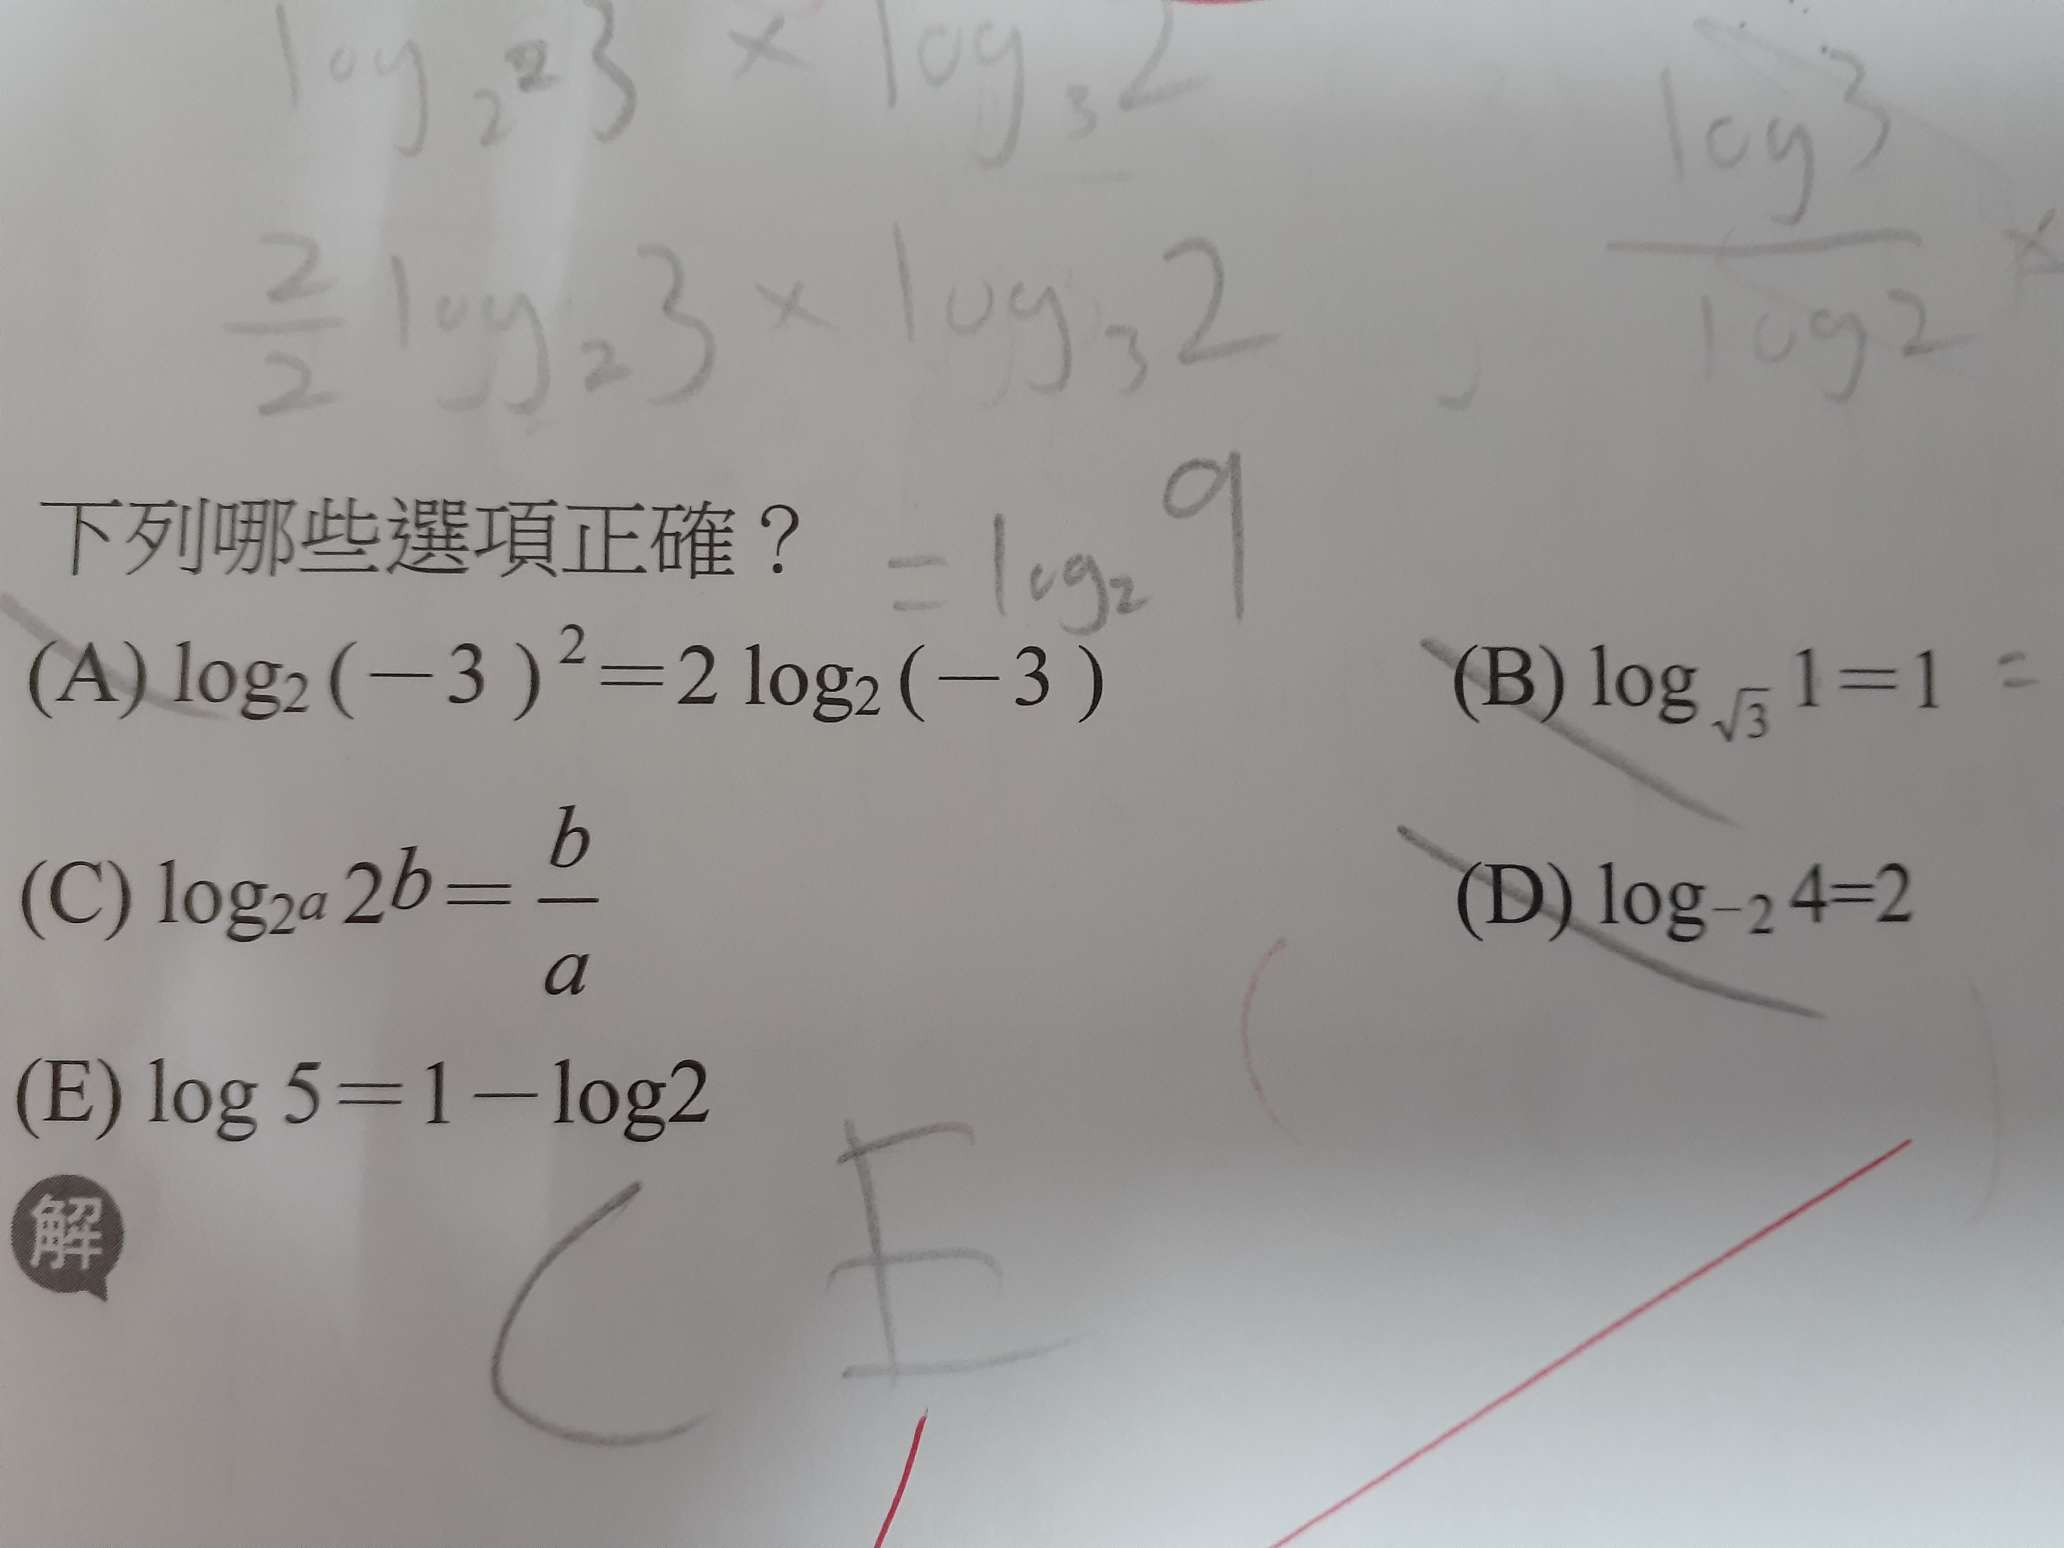 log₂²3 × log₃2
2/2 log₂3 × log₃2 , log3/log2 ×
下列哪些選項正確？ = log₂9
(A) log₂(－3)²＝2 log₂(－3) (B) log_√3 1＝1 =
(C) log₂ₐ 2b＝b/a (D) log₋₂ 4=2
(E) log 5＝1－log2
解
C E